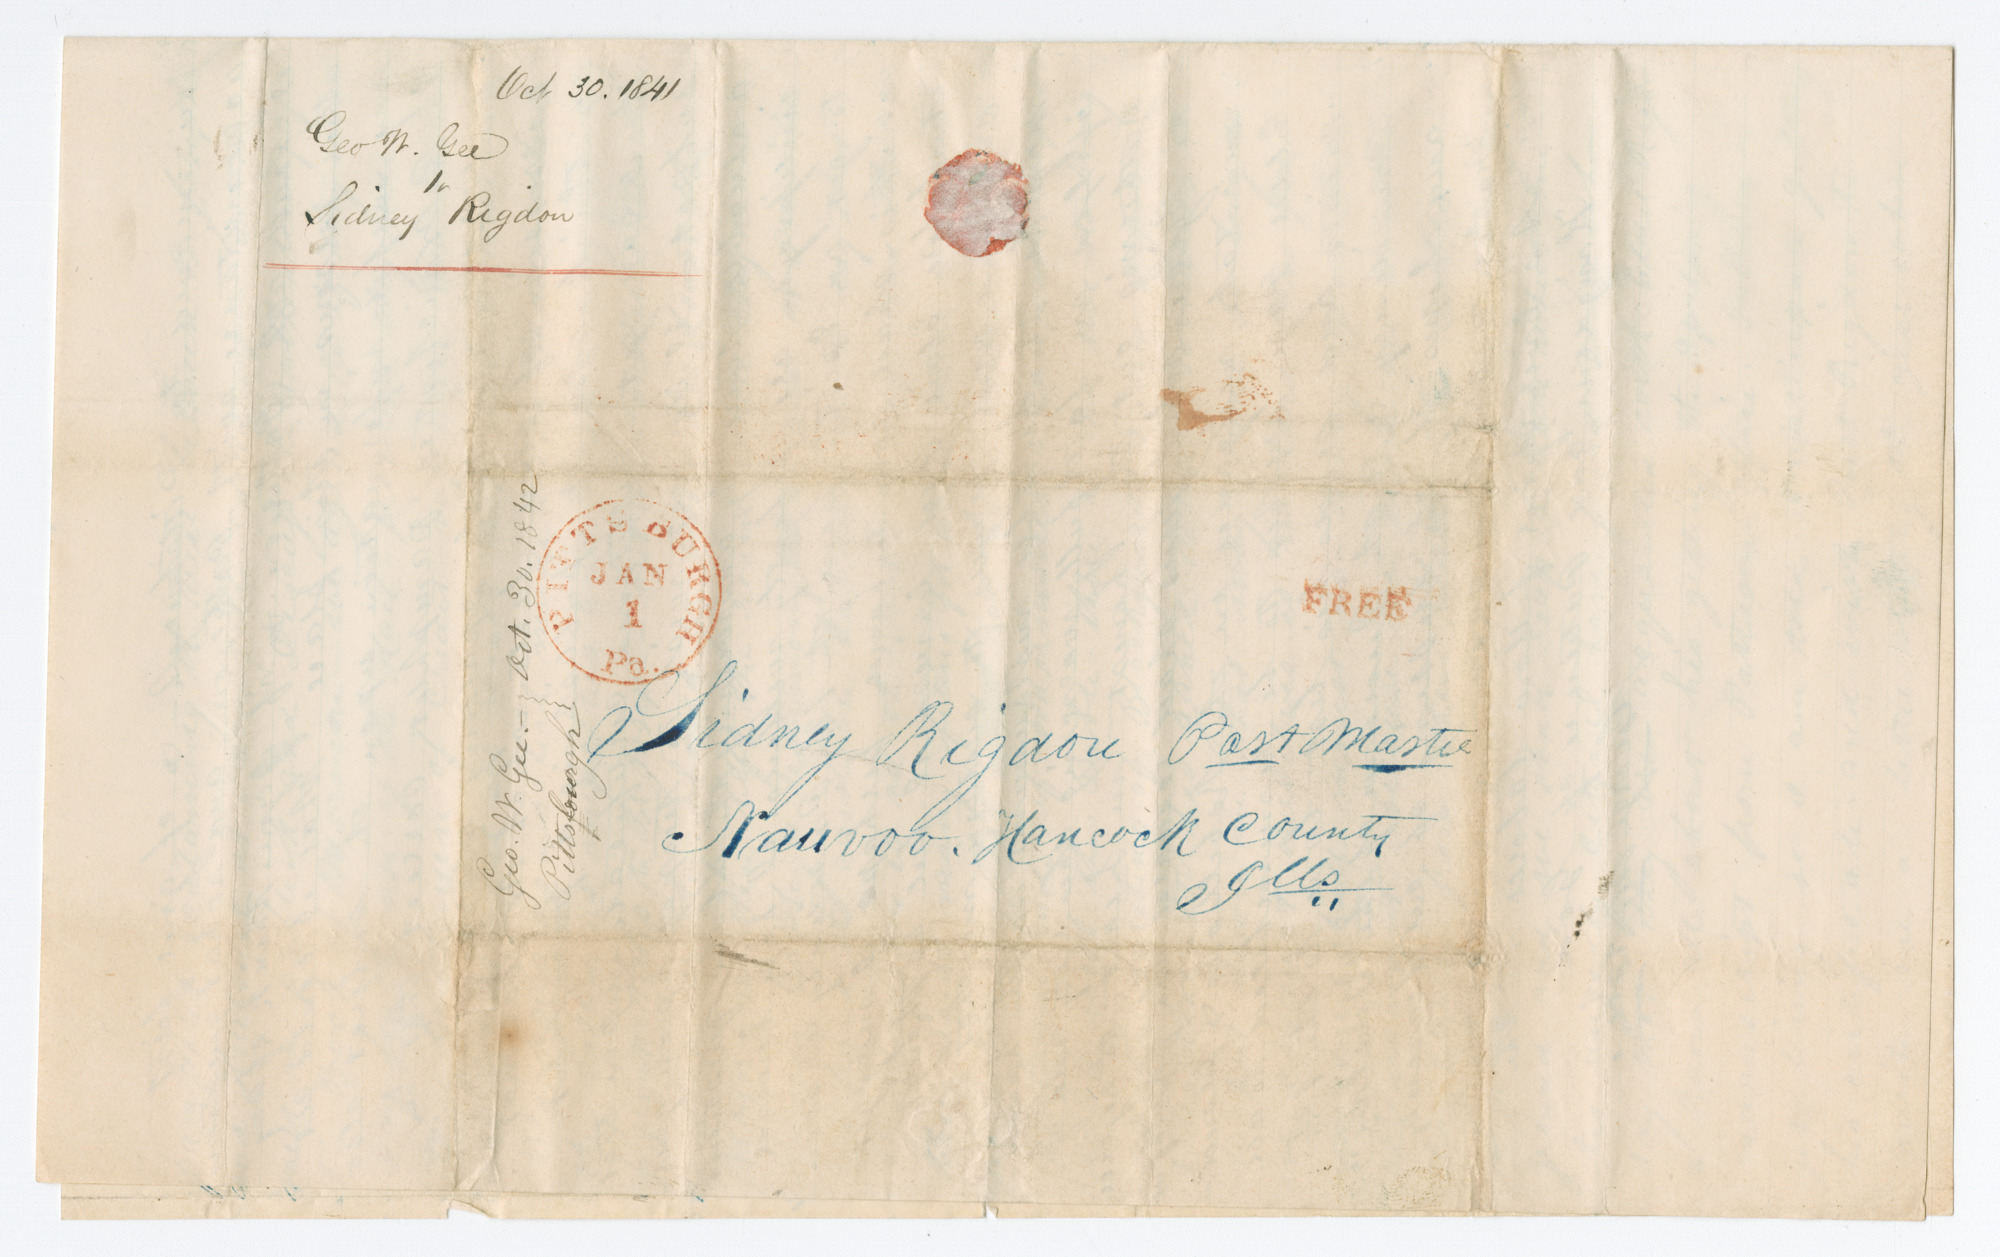 Oct 30. 1841
Geo W. Gee
to
Sidney Rigdon
Geo. W. Gee.— } Oct. 30. 1842
Pittsburgh }
PITTSBURGH
JAN
1
Pa.
FREE
Sidney Rigdon Post Master
Nauvoo. Hancock County
Ills